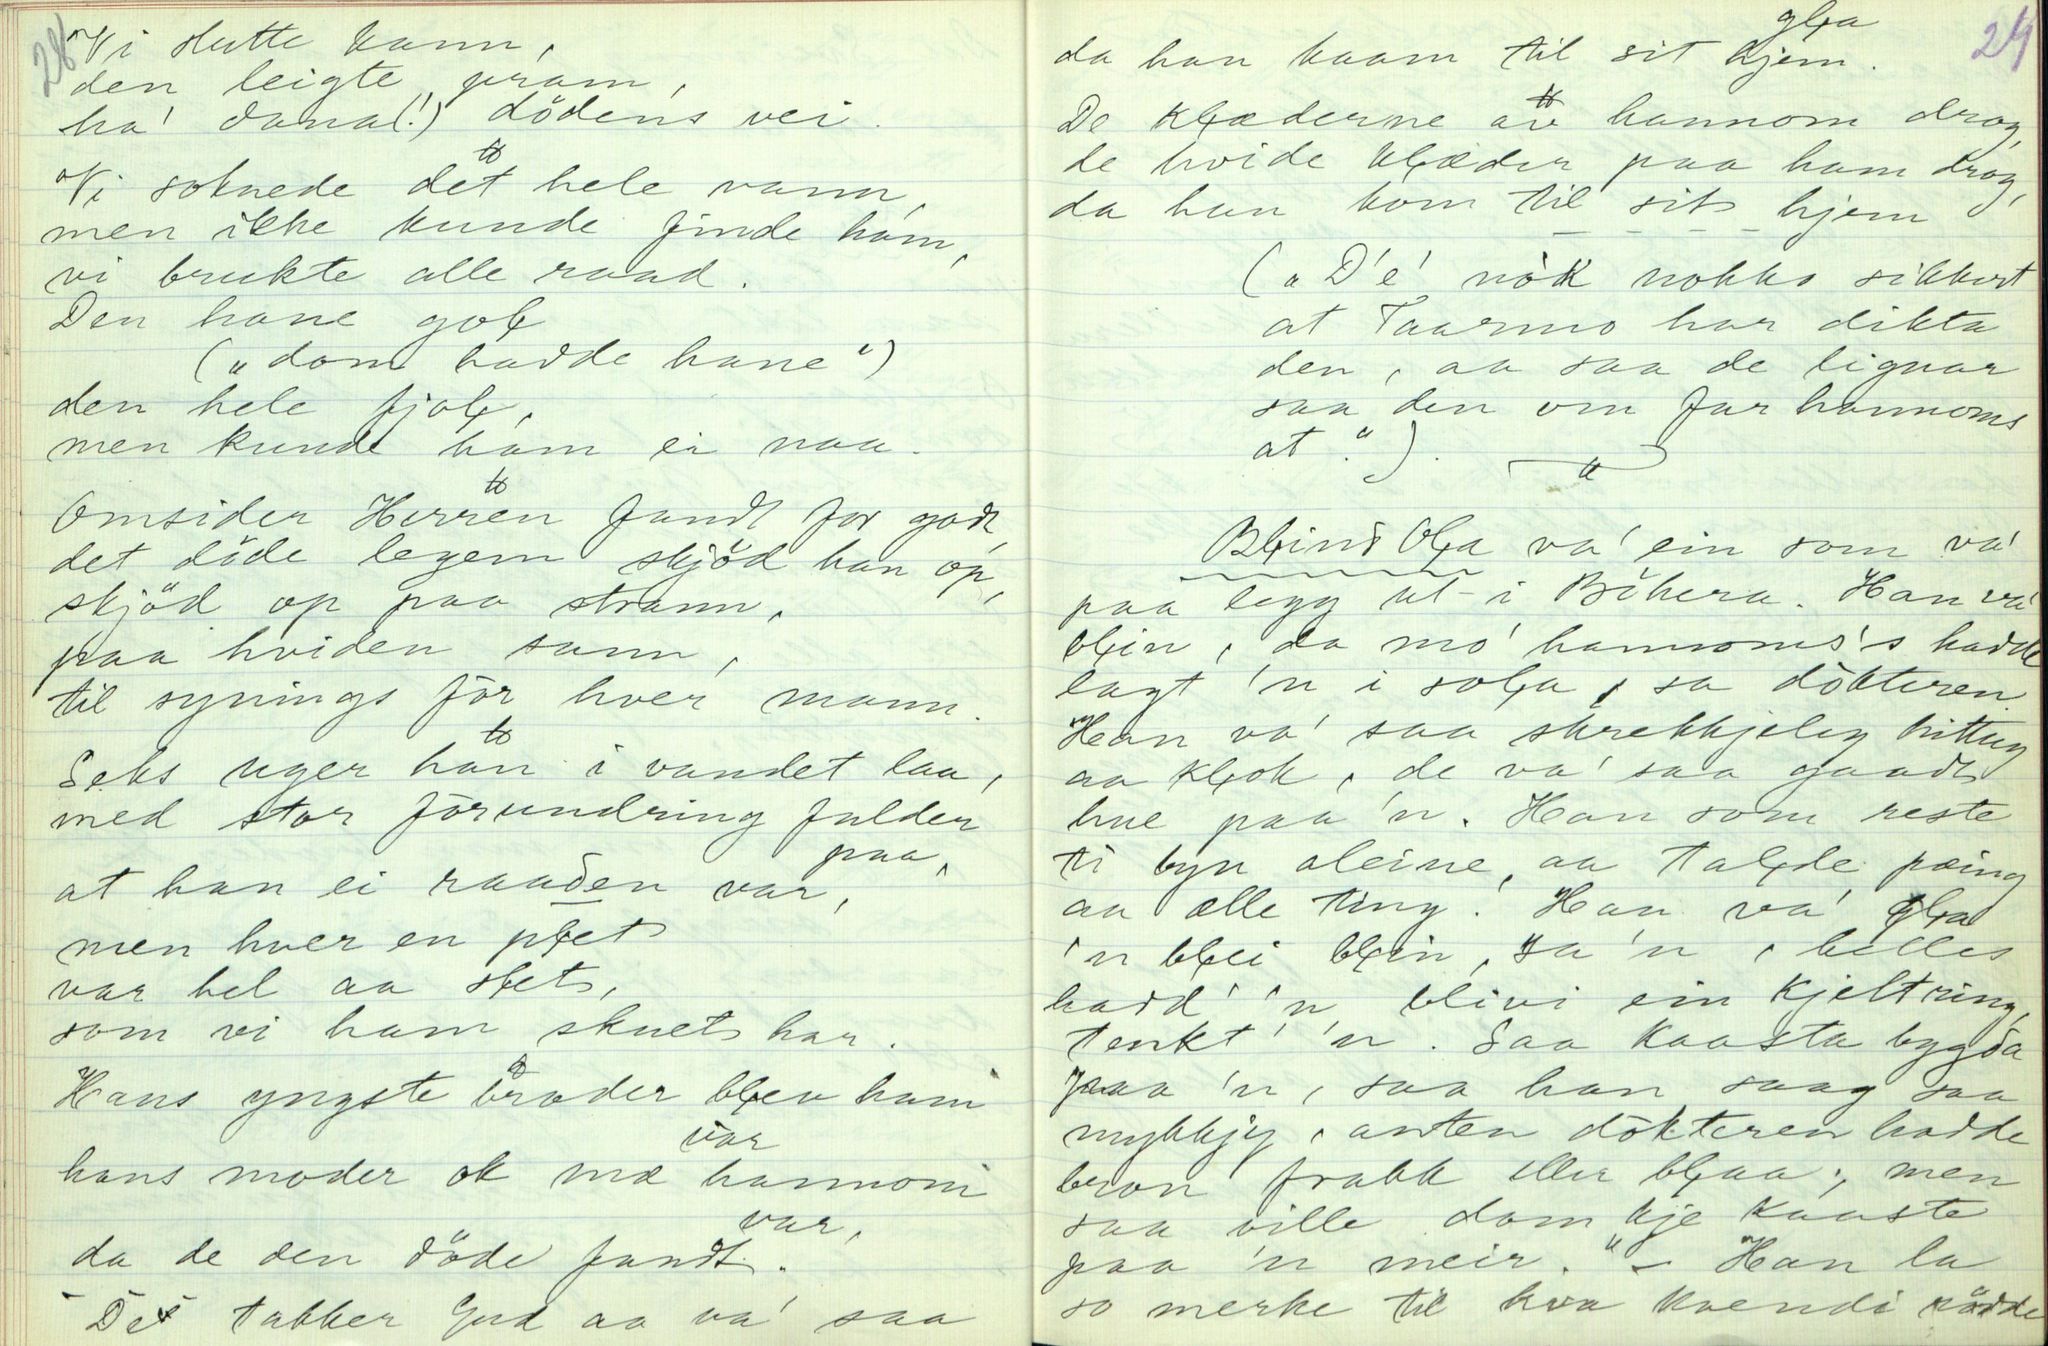 28
Vi slutte kann,
den leigte pram,
ha' dana(!) dödens vei.
Vi soknede det hele vann,
men ikke kunde finde ham,
vi brukte alle raad.
Den hane goł
("dom hadde hane")
den hele fjoł,
men kunde ham ei naa.
Omsider Herren fandt for godt,
det döde legem skjöd han op,
skjöd op paa strann,
paa hviden sann,
til synings för hver mann.
Seks uger han i vandet laa,
med stor förundring falder
paa,
at han ei raaden var,
men hver en płet
var hel aa słet,
som vi ham skuet har.
Hans yngste broder błev ham
var
hans moder ok mæ hannom
var,
da de den döde fandt.
De takker Gud aa va' saa
24
gła
da han kaam til sit hjem.
De kłæderne av hannom drog,
de hvide kłæder paa ham drog,
da han kom til sit hjem
("D'e' nok nokko sikkert
at Taarmo har dikta
den, aa saa de lignar
saa den om far hannoms
at.").
Błind Oła va' ein som va'
paa legg ut i Böhera. Han va'
błin, da mo' hannoms's hadde
lagt 'n i soła, sa dökteren.
Han va' saa skrekkjeleg hittug
aa kłok, de va' saa gaadt
hue paa 'n. Han som reste
ti byn aleine, aa tałde pæing
aa alle ting. Han va' gła
'n błei błin, sa 'n, helles
hadd' 'n blivi ein kjeltring,
tenkt' 'n. Saa kaasta bygda
paa 'n, saa han saag saa
mykkjy, anten dökteren hadde
bron frakk eller błaa; men
saa ville dom kje kaaste
paa 'n meir." – Han la
so merke til kva kvendi rödde